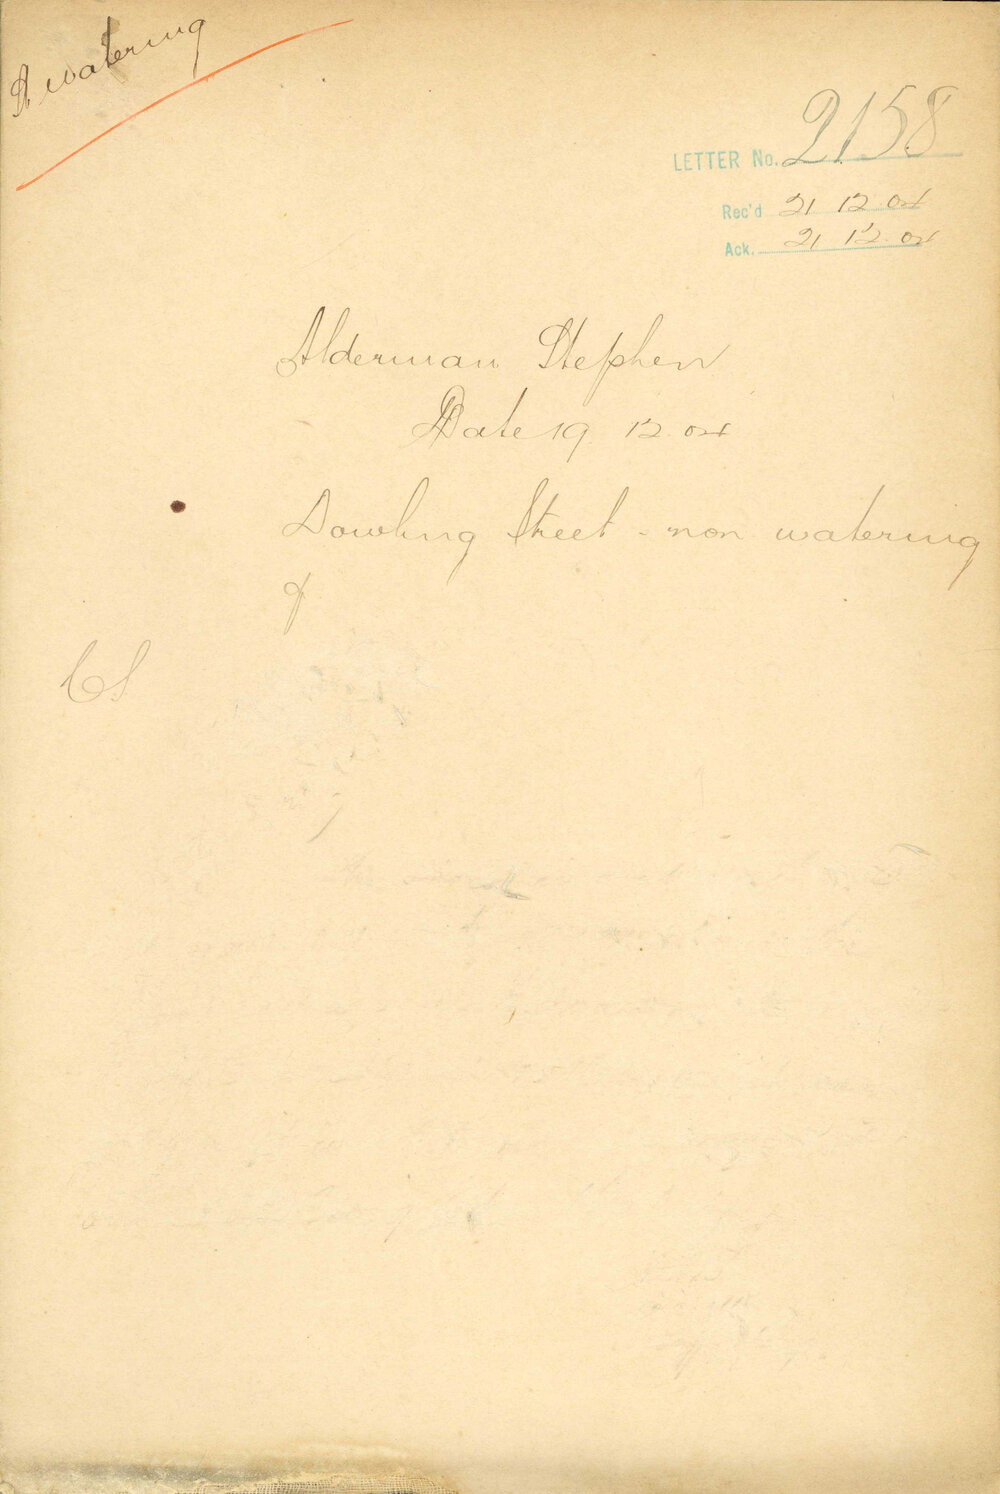 St watering
LETTER No. 2158
Rec'd 21 12 04
Ack. 21 12 04
Alderman Stephen
Date 19 12 04
Dowling Street - non watering
of
CS